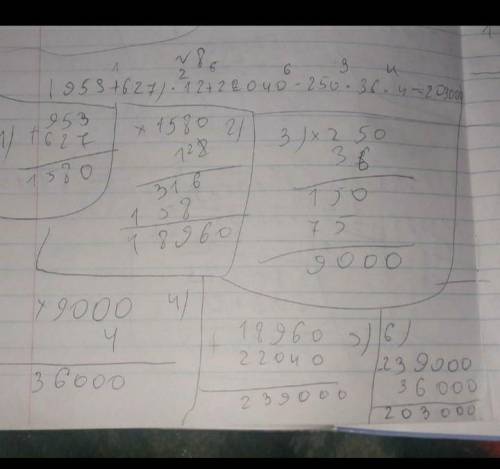 №8
1 2 6 6 3 4
(953+627)·12+22040-250·36·4=203000
1) +953
627
1580
×1580 2)
12
316
158
18960
3) ×250
36
150
75
9000
×9000 4)
4
36000
+18960 5)
22040
239000
6)
239000
36000
203000